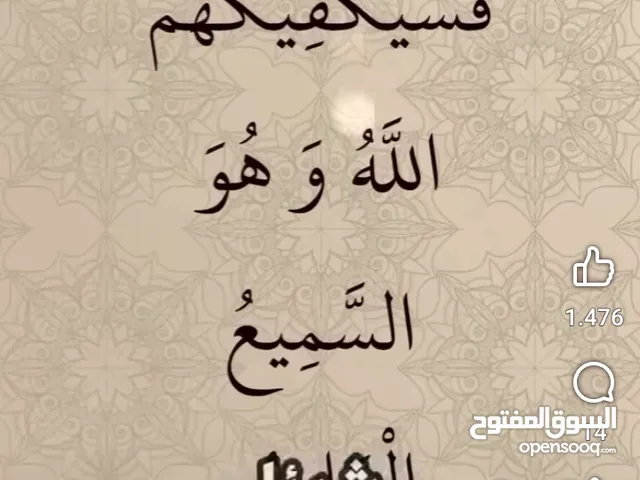 فسيكفيكهم
اللَّهُ وَ هُوَ
السَّمِيعُ
1.476
14
السوق المفتوح
opensooq.com